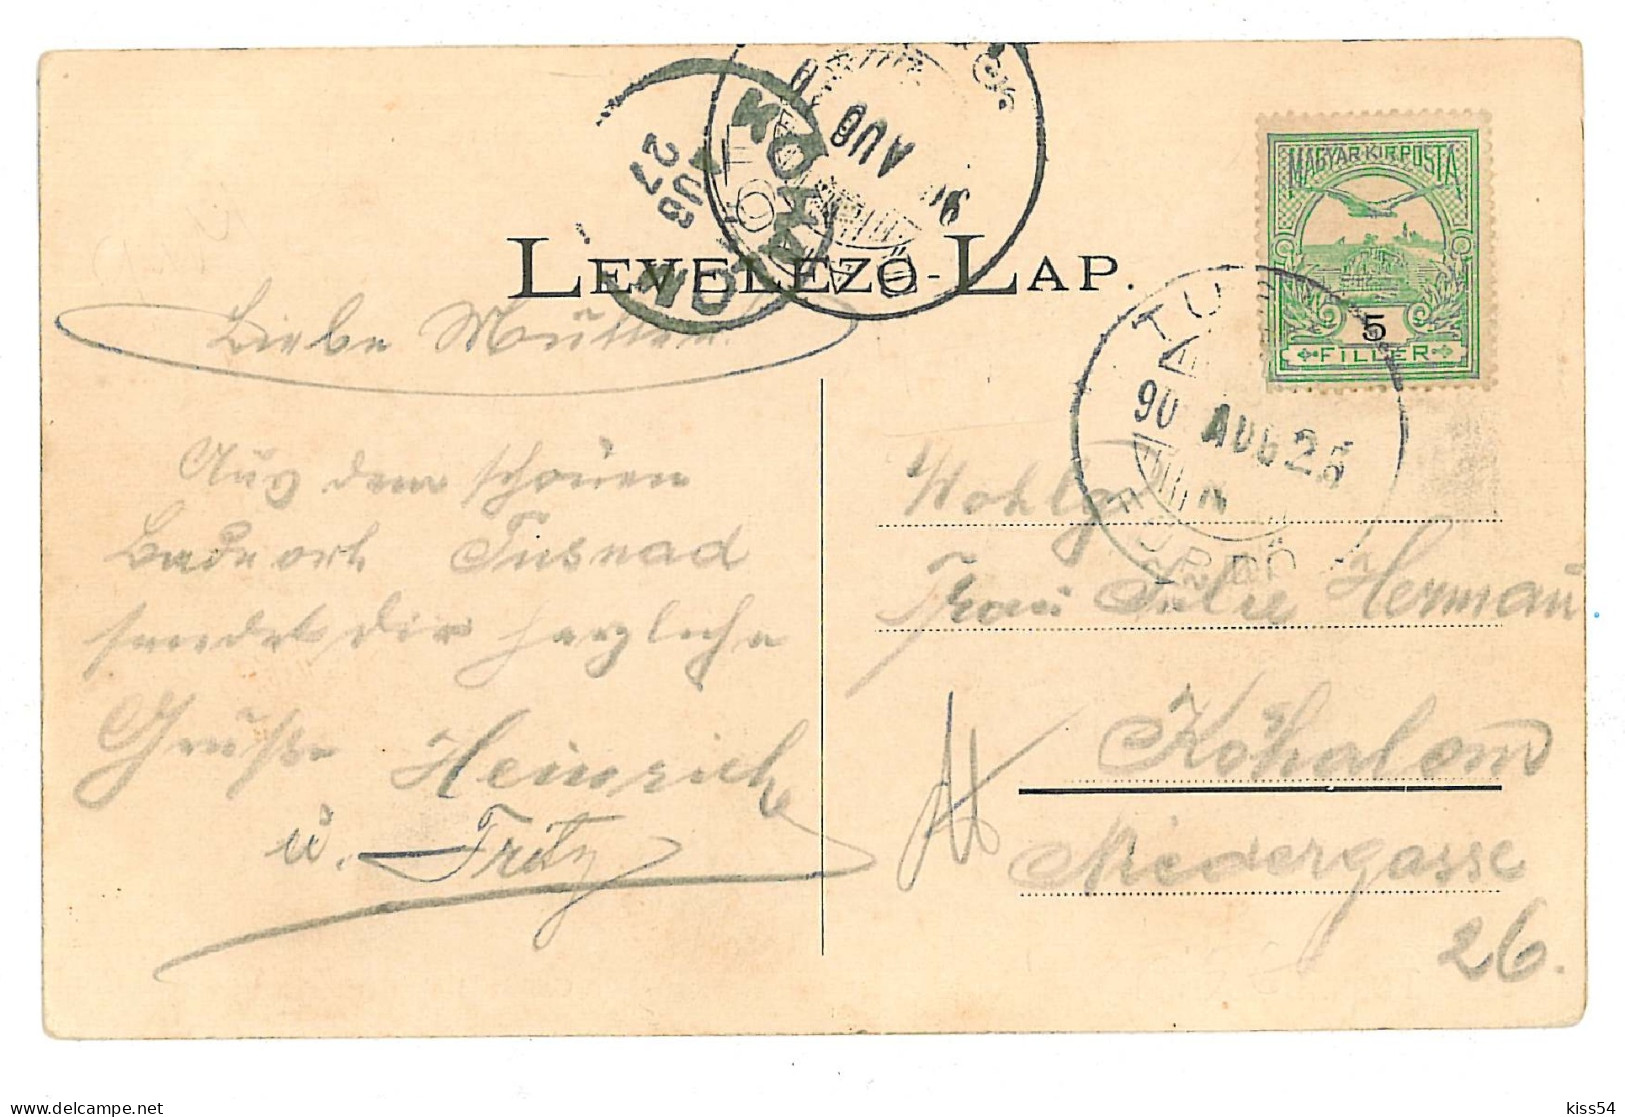 LEVELEZŐ-LAP.
MAGYAR KIR. POSTA
5
FILLER
AUG
27
AUG
KŐHALOM
TUS
90 AUG 25
FÜRDŐ
Liebe Mutter
Aus dem schönen
Badeort Tusnad
sendet dir herzliche
Grüße Heinrich
u. Fritz
Wohlg
Frau Julie Herman
Kőhalom
Niedergasse
26.
kiss54